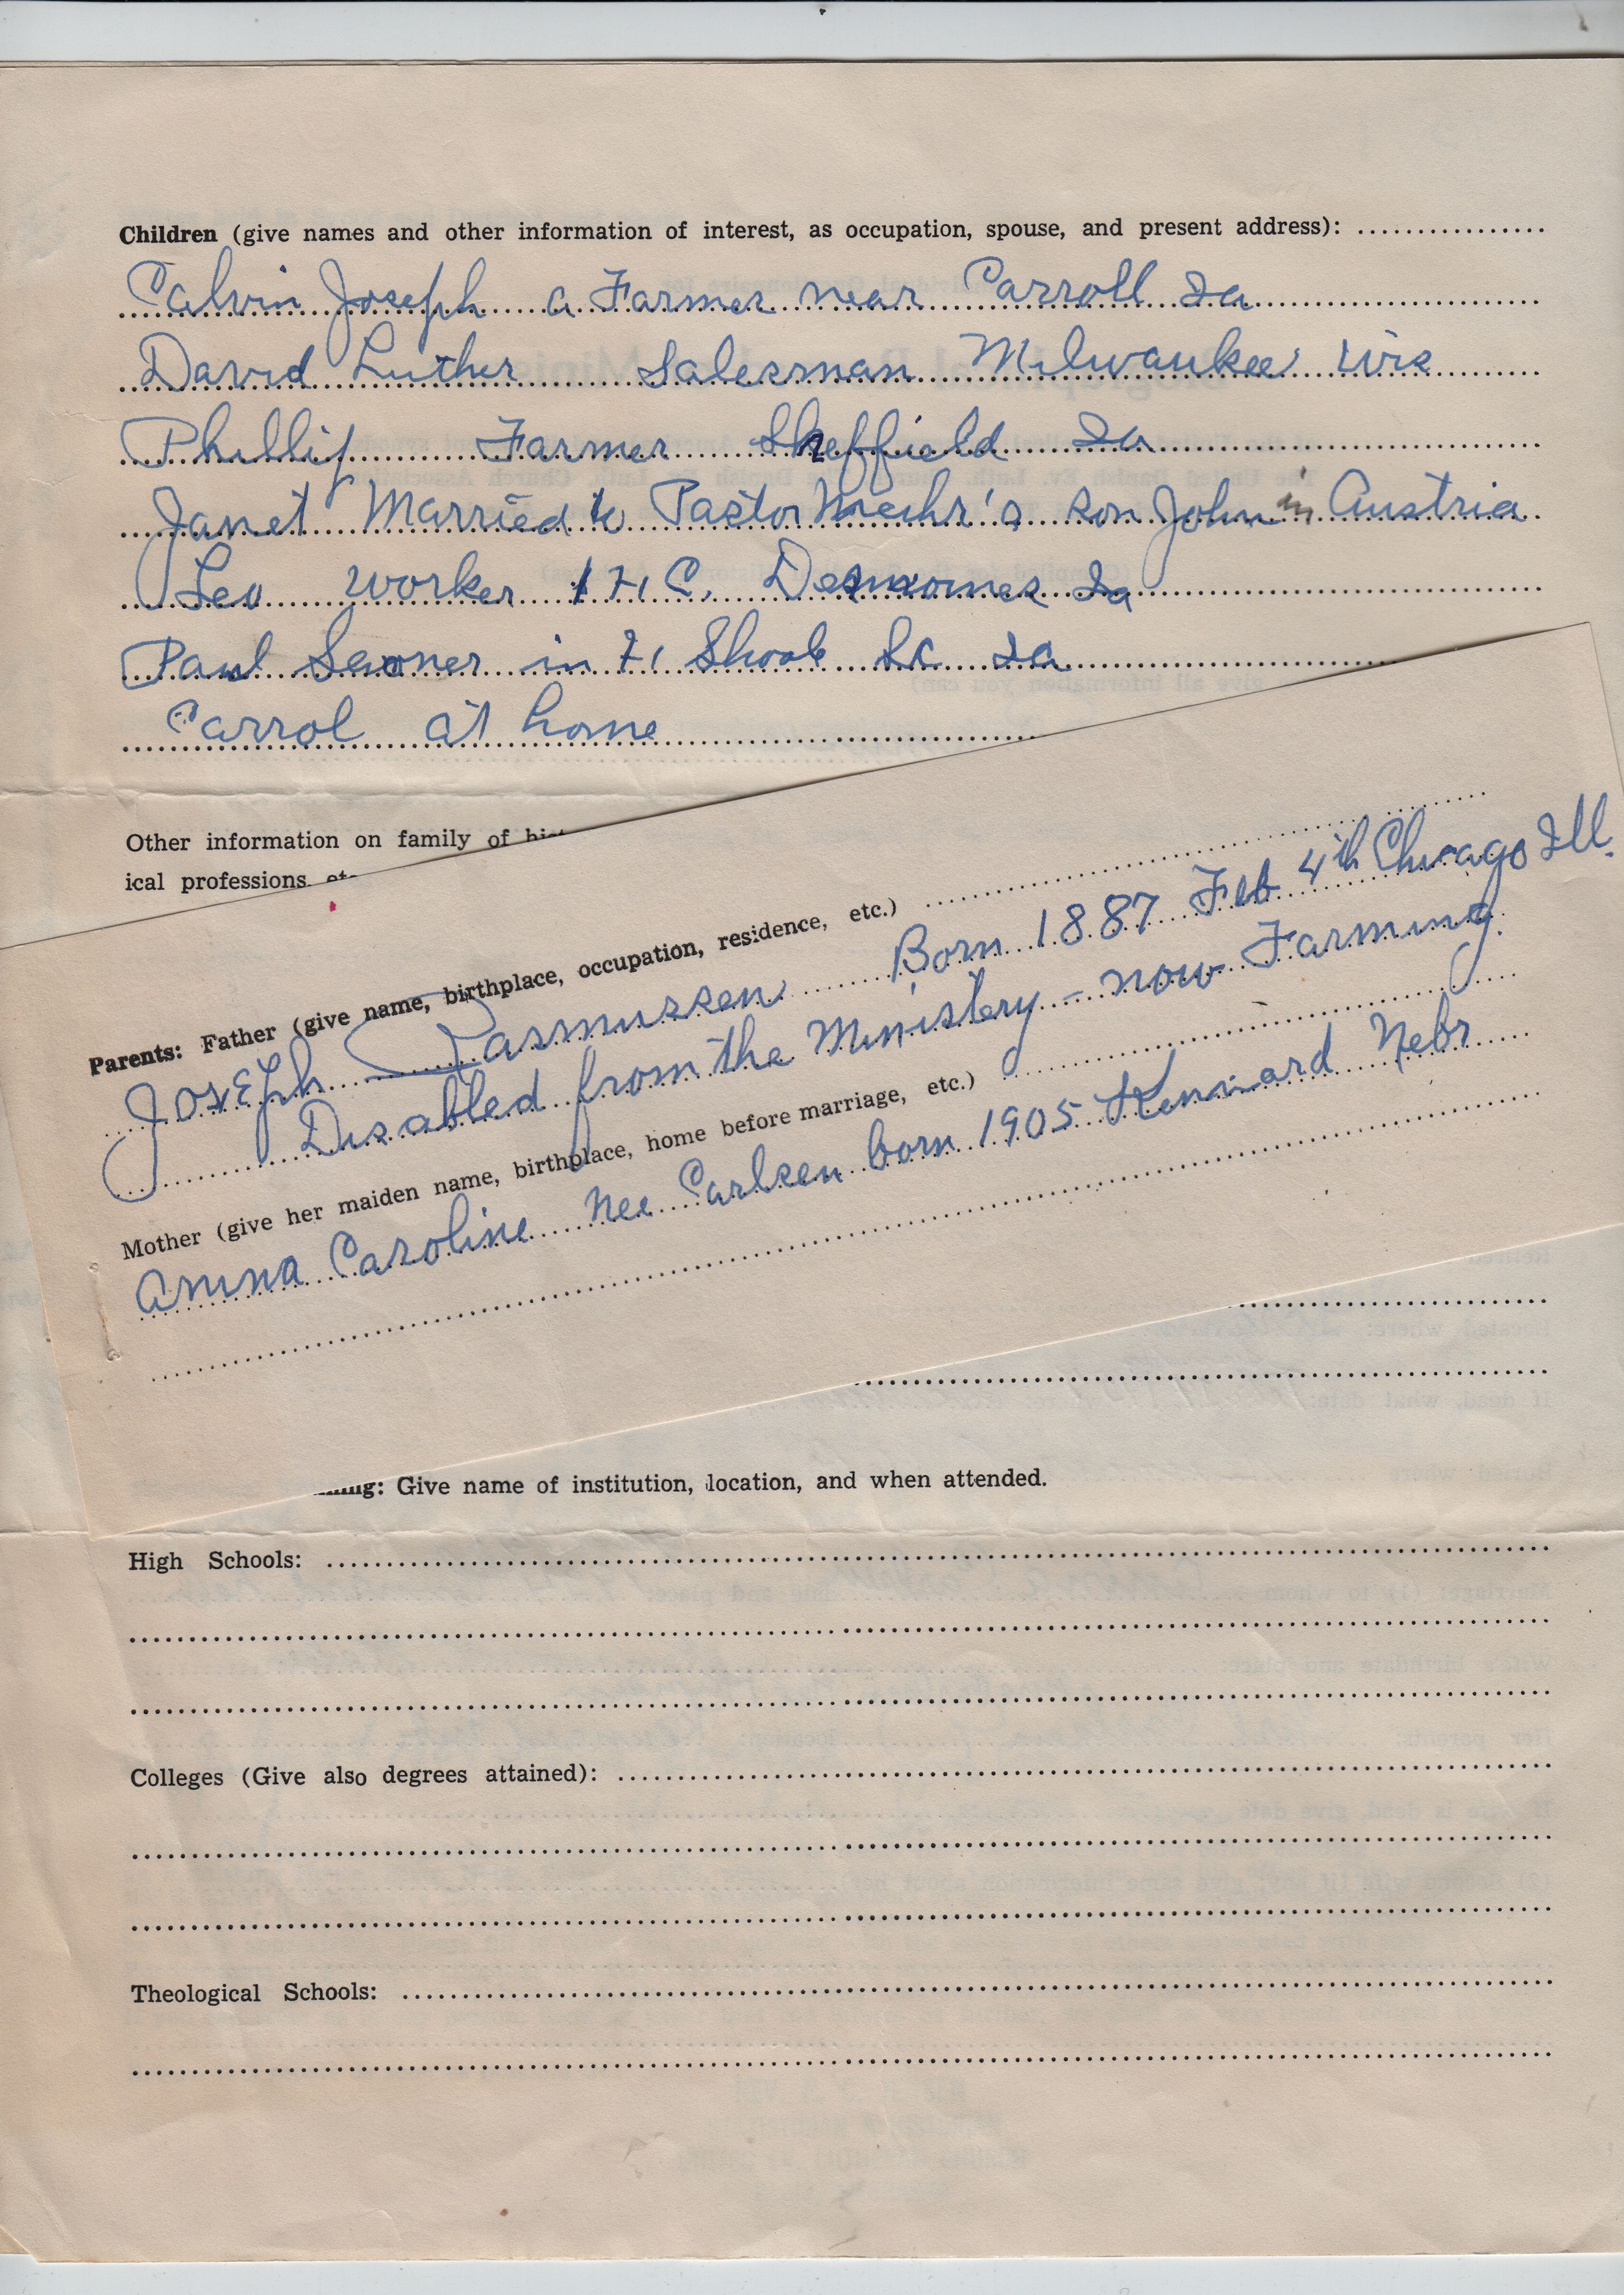 Children (give names and other information of interest, as occupation, spouse, and present address):
Calvin Joseph a Farmer near Carroll Ia
David Luther Salesman Milwaukee Wis
Phillip Farmer Sheffield Ia
Janet Married to Pastor son John in Austria
Leo worker I H C. Desmoines Ia
Paul in H Ia
Carrol at home
Other information on family of
ical professions
Parents: Father (give name, birthplace, occupation, residence, etc.)
Joseph Rasmussen Born 1887 Feb 4th Chicago Ill.
Disabled from the Ministery - now Farming.
Mother (give her maiden name, birthplace, home before marriage, etc.)
Anna Caroline Nee Carlsen born 1905 Kennard Nebr
Give name of institution, location, and when attended.
High Schools:
Colleges (Give also degrees attained):
Theological Schools: